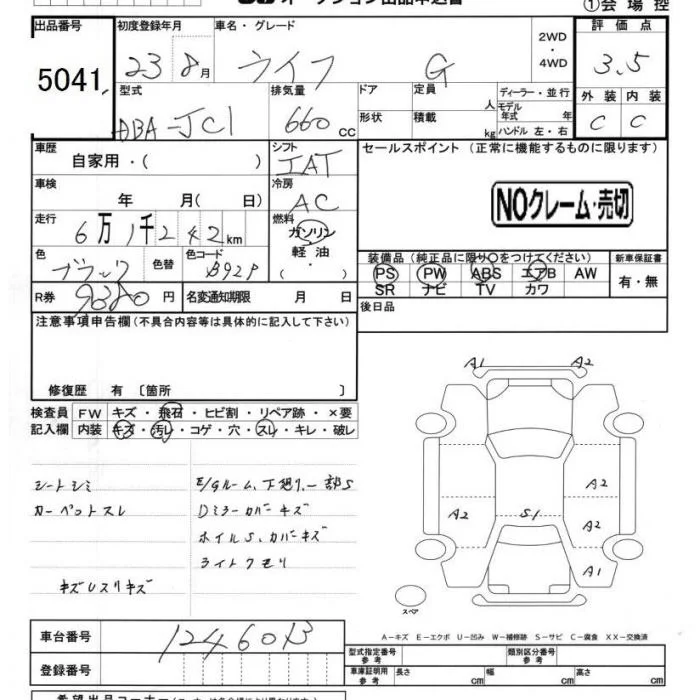 オークション出品申込書
①会場控
出品番号 初度登録年月 車名・グレード 評価点
5041 23 8月 ライフ G 2WD・4WD 3.5
型式 排気量 ドア 定員 人 ディーラー・並行 外装 内装
DBA-JC1 660 CC 形状 積載 kg モデル年式 年 ハンドル 左・右 C C
車歴 シフト セールスポイント (正常に機能するものに限ります)
自家用・( ) IAT
車検 冷房
年 月( 日) AC
NOクレーム・売切
走行 燃料
6万1千242km ガソリン
軽油
・
色 色替 色コード 装備品(純正品に限り○をつけてください) 新車保証書
ブラック B92P PS PW ABS エアB AW 有・無
SR ナビ TV カワ
R券 9380円 名変通知期限 月 日 後日品
注意事項申告欄(不具合内容等は具体的に記入して下さい)
修復歴 有 〔箇所 〕
検査員 FW キズ・飛石・ヒビ割・リペア跡・×要
記入欄 内装 キズ・汚レ・コゲ・穴・スレ・キレ・破レ
シートシミ
カーペットスレ
キズUスリキズ
E/Gルーム、下廻り、一部S
Dミラーカバーキズ
ホイルS、カバーキズ
ライトクモリ
A1 A2
A2
A2 S1 A2
A1
スペア
A-キズ E-エクボ U-凹み W-補修跡 S-サビ C-腐食 XX-交換済
車台番号 1246013
登録番号
型式指定番号 参考 類別区分番号 参考
車庫証明用 参考 長さ cm 幅 cm 高さ cm
希望出品コーナー